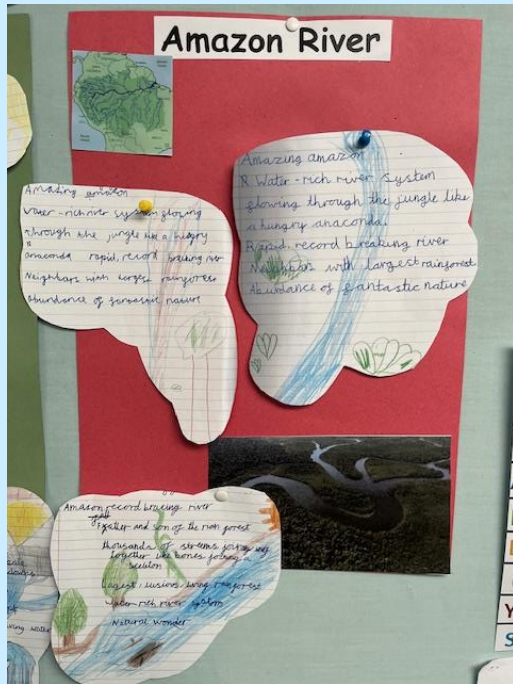 Amazon River
Amazing amazon
R Water-rich river system
flowing through the jungle like
a hungry anaconda
Rapid, record breaking river
Neighbors with largest rainforest
Abundance of fantastic nature
Amazing amazon
water-rich river system flowing
through the jungle like a hungry
anaconda rapid, record breaking river
Neighbars with largest rainforest
abundance of fantastic nature
Amazon record bracing river
Father and son of the rain forest
thousands of streams
together like bones forming a
skeleton
living rainforest
water-rich river system
Natural wonder
Y
S